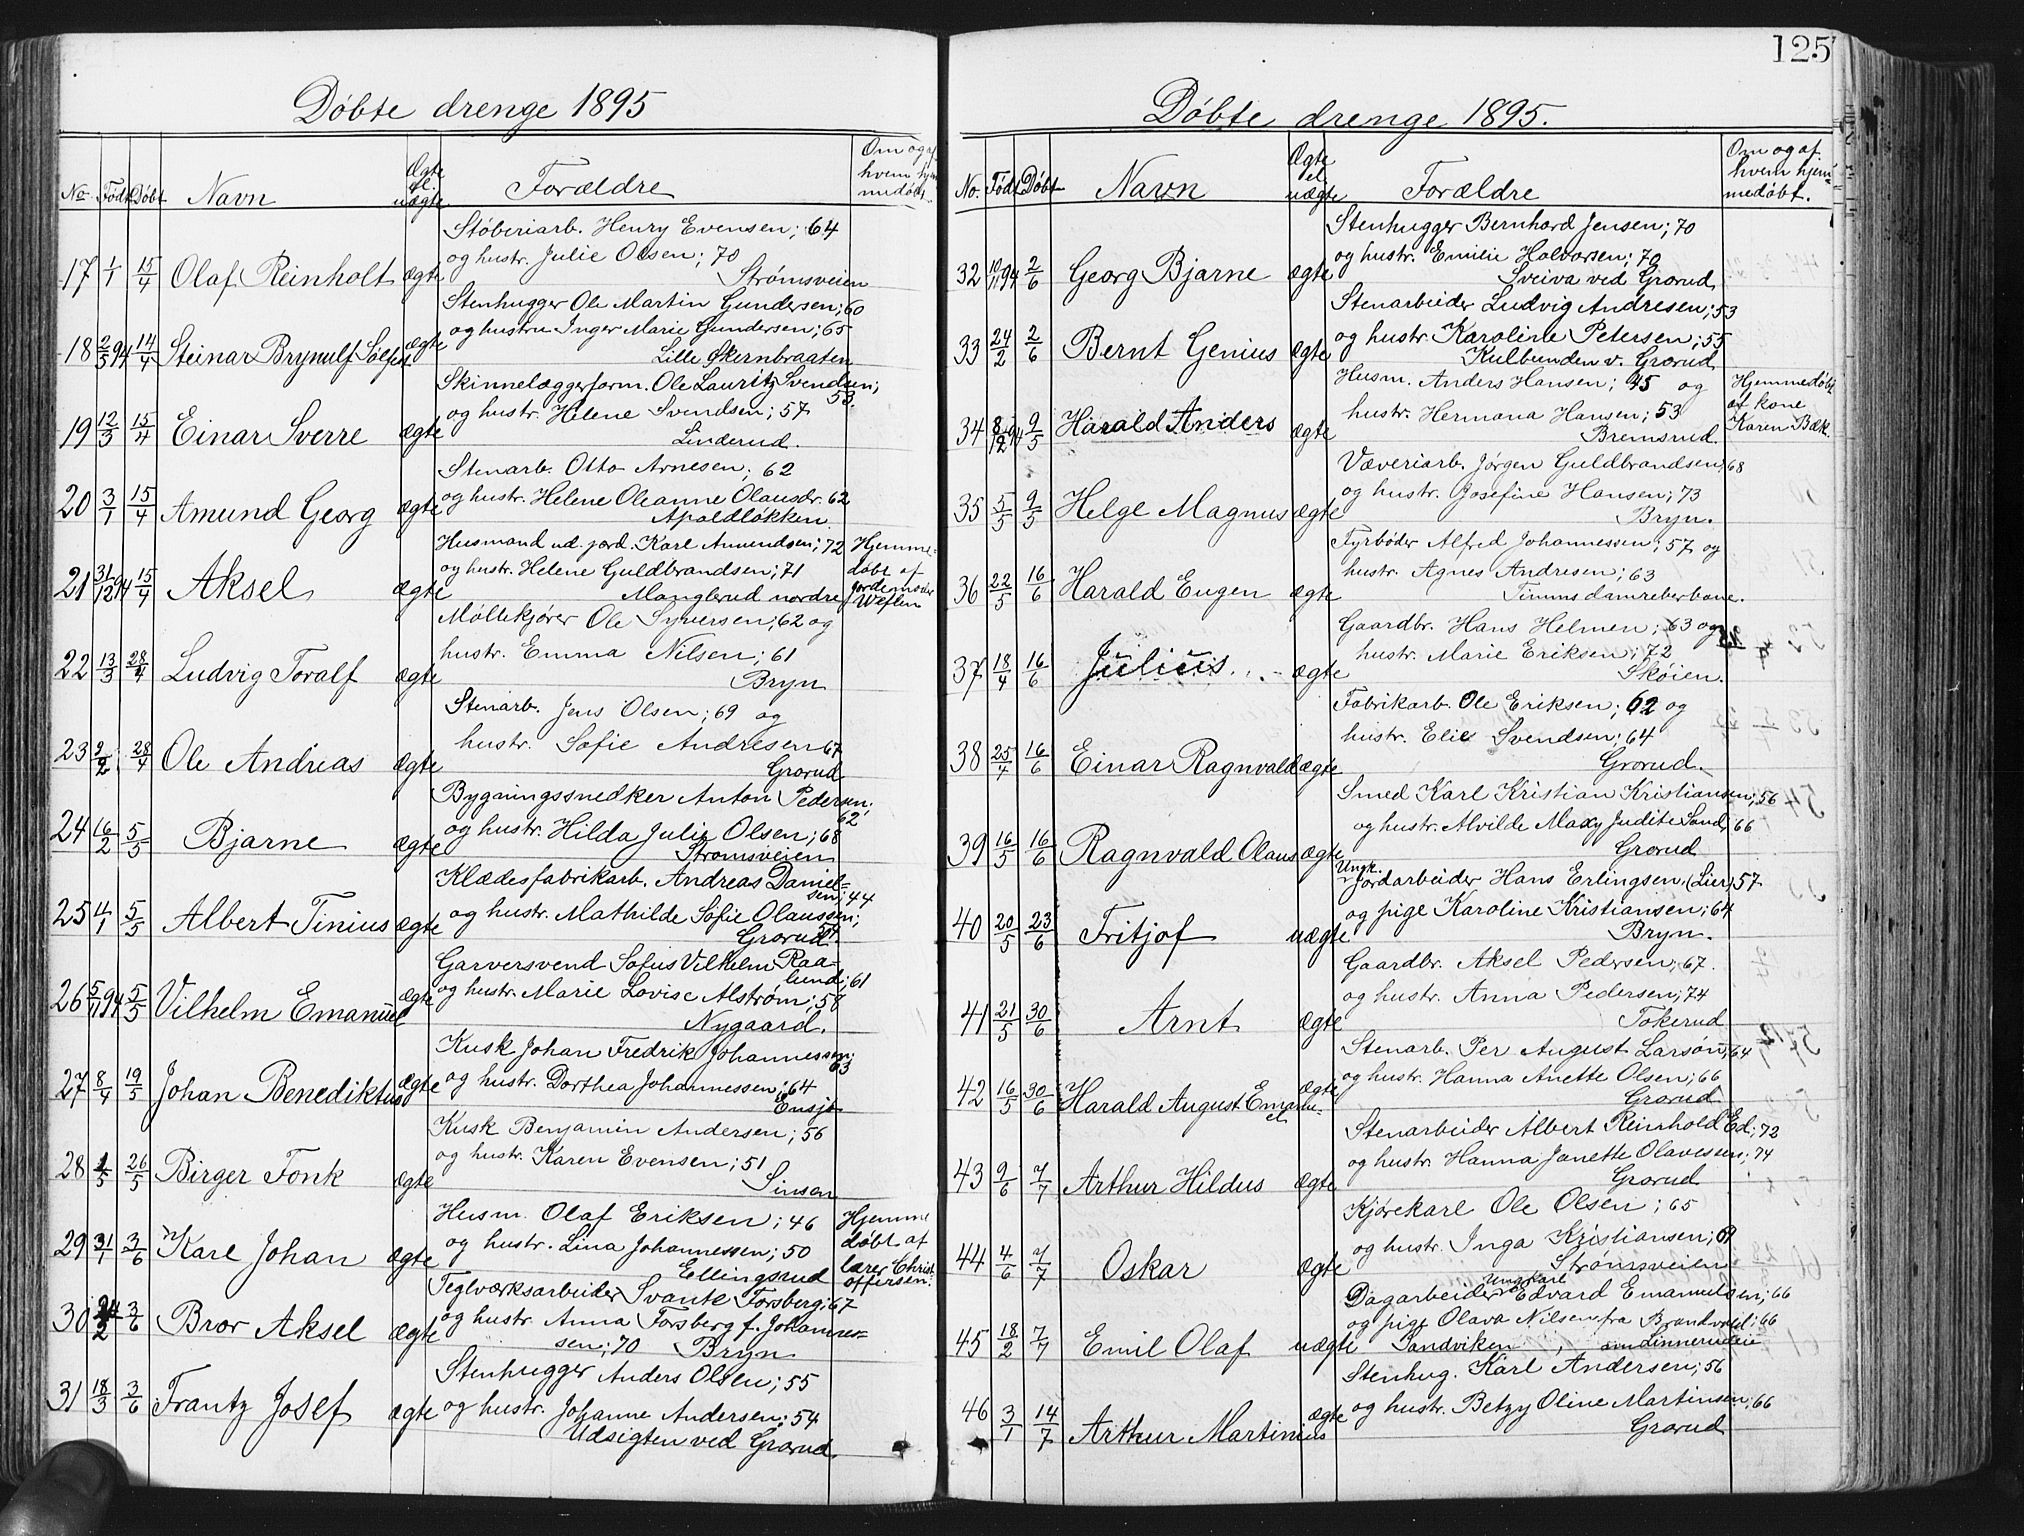 125
Døbte drenge 1895
No. Født Døbt Navn Ægte el. uægte Forældre Om og af hvem hjemmedøbt.
Støberiarb. Henry Evensen; 64
og hustr. Julie Olsen; 70
17 1/1 15/4 Olaf Reinholt ægte Strømsveien
Stenhugger Ole Martin Gundersen; 60
og hustru Inger Marie Gundersen; 65
18 2/5 94 14/4 Steinar Brynulf ægte Lille Skernbraaten
Skinnelæggerform. Ole Lauritz Svendsen; 53.
og hustr. Helene Svendsen; 57
19 12/3 15/4 Einar Sverre ægte Linderud.
Stenarb. Otto Arnesen; 62
og hustr. Helene Oleanne Olausdr. 62
20 3/1 15/4 Amund Georg ægte Apaldløkken
Husmand ud. jord. Karl Amundsen; 72 Hjemme-
og hustr. Helene Guldbrandsen; 71 døbt af
21 31/12 94 15/4 Aksel ægte Manglerud nordre jordemoder Weflen
Møllekjører Ole Syversen; 62 og
hustr. Emma Nilsen; 61
22 13/3 28/4 Ludvig Toralf ægte Bryn
Stenarb. Jens Olsen; 69 og
hustr. Sofie Andresen 67
23 2/2 28/4 Ole Andreas ægte Grorud
Bygningssnedker Anton Pedersen; 62
og hustr. Hilda Julie Olsen; 68
24 16/2 5/5 Bjarne ægte Strømsveien
Klædesfabrikarb. Andreas Daniel-
sen; 44
og hustr. Mathilde Sofie Olaussen;
25 4/1 5/5 Albert Tinius ægte Grorud
Garversvend Sofus Vilhelm Raa-
lund; 61
og hustr. Marie Lovise Alstrøm; 58
26 5/11 94 5/5 Vilhelm Emanuel ægte Nygaard.
Kusk Johan Fredrik Johannessen; 63
og hustr. Dorthea Johannessen; 64
27 8/4 19/5 Johan Benediktus ægte Ensjø
Kusk Benjamin Andersen; 56
og hustr. Karen Evensen; 51
28 1/5 26/5 Birger Fonk ægte Sinsen
Husm. Olaf Eriksen; 46 Hjemme
og hustr. Lina Johannessen; 50 døbt af
29 31/1 3/6 Karl Johan ægte Ellingsrud lærer Christoffersen.
Teglværksarbeider Svante Forsberg; 67
og hustr. Anna Forsberg f. Johannes-
30 3/6 Bror Aksel ægte sen; 70 Bryn
Stenhugger Anders Olsen; 55
og hustr. Johanne Andersen; 54
31 18/3 3/6 Frantz Josef ægte Udsigten ved Grorud.
Døbte drenge 1895.
No. Født Døbt Navn Ægte el uægte Forældre Om og af hvem hjemmedøbt.
Stenhugger Bernhard Jensen; 70
og hustr. Emilie Halvorsen; 70
32 10/11 94 2/6 Georg Bjarne ægte Sveiva ved Grorud
Stenarbeider Ludvig Andresen; 53
og hustr. Karoline Petersen; 55
33 24/2 2/6 Bernt Genius ægte Kulbunden v. Grorud
Husm. Anders Hansen; 45 og Hjemmedøbt
hustr. Hermana Hansen; 53 af kone
34 8/12 94 9/5 Harald Anders ægte Bremsrud. Karen Bæk.
Væveriarb. Jørgen Guldbrandsen; 68
og hustr. Josefine Hansen; 73
35 5/5 9/5 Helge Magnus ægte Bryn.
Fyrbøder Alfred Johannessen; 57 og
hustr. Agnes Andresen; 63
36 22/5 16/6 Harald Eugen ægte
Gaardbr. Hans Helmen; 63 og
hustr. Marie Eriksen; 72
37 18/4 16/6 Julius ægte Skøien.
Fabrikarb. Ole Eriksen; 62 og
hustr. Elie Svendsen; 64
38 25/4 16/6 Einar Ragnvald ægte Grorud.
Smed Karl Kristian Kristiansen; 56
og hustr. Alvilde Maxy Judite Sand; 66
39 16/5 16/6 Ragnvald Olaus ægte Grorud
Ungk.
Jordarbeider Hans Erlingsen, (Lier) 57
og pige Karoline Kristiansen; 64
40 20/5 23/6 Fritjof uægte Bryn.
Gaardbr. Aksel Pedersen; 67.
og hustr. Anna Pedersen; 74
41 21/5 30/6 Arnt ægte Tokerud
Stenarb. Per August Larsøn; 64
og hustr. Hanna Anette Olsen; 66
42 16/5 30/6 Harald August Emanuel ægte Grorud
Stenarbeider Albert Reinhold Ed; 72
og hustr. Hanna Janette Olavesen; 74
43 9/6 7/7 Arthur Hildus ægte Grorud
Kjørekarl Ole Olsen; 65
og hustr. Inga Kristiansen;
44 4/6 7/7 Oskar ægte Strømsveien
Ungkarl
Dagarbeider Edvard Emanuelsen; 66
og pige Olava Nilsen fra Brandvold; 66
45 18/2 7/7 Emil Olaf uægte Sandviken, Linnerudeie
Stenhug. Karl Andersen; 56
og hustr. Betzy Oline Martinsen; 66
46 3/1 14/7 Arthur Martinius ægte Grorud